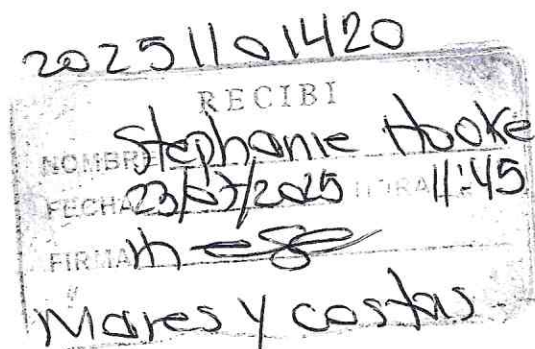 20251101420
RECIBI
NOMBRE Stephanie Hooke
FECHA 23/07/2025 HORA 11:45
FIRMA
Mares y costas